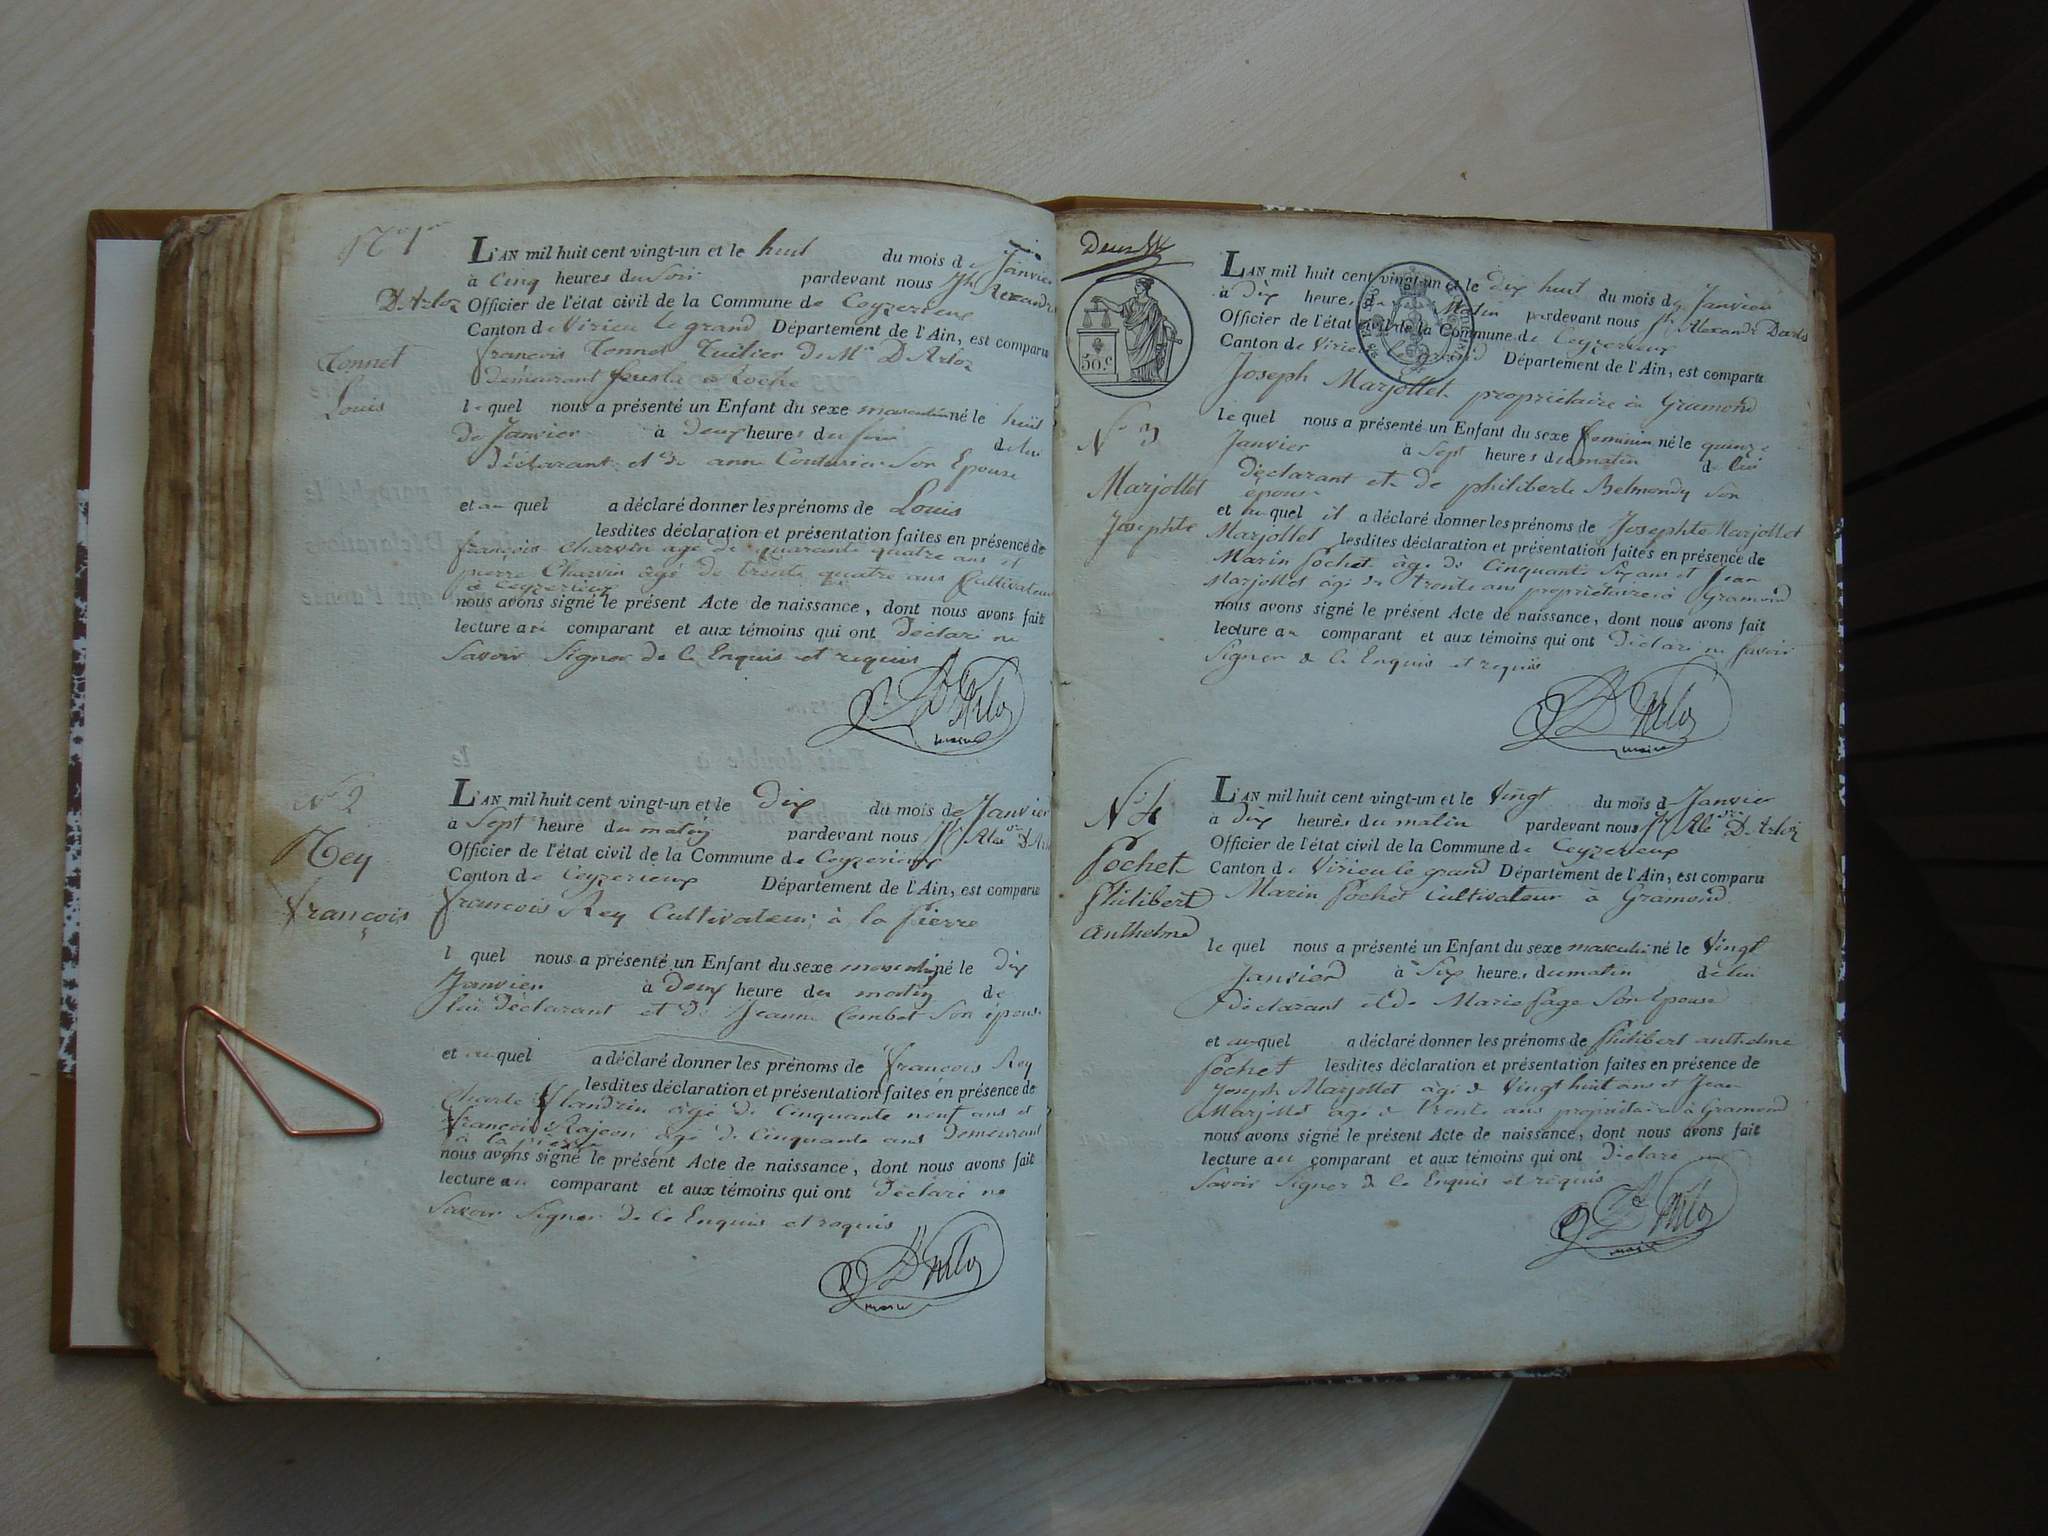 N° 1er
L'AN mil huit cent vingt-un et le huit du mois de Janvier
à Cinq heures du Soir pardevant nous Jh Alexandre
D'Arloz Officier de l'état civil de la Commune de Ceyzerieux
Canton de Virieu le grand Département de l'Ain, est comparu
françois Tonnet Tuilier de Mr D'Arloz
demeurant
Tonnet
Louis
le quel nous a présenté un Enfant du sexe masculin né le huit
de Janvier à deux heures du soir de lui
déclarant et de anne Couturier Son Epouse
et au quel a déclaré donner les prénoms de Louis
lesdites déclaration et présentation faites en présence de
françois Charvin agé de quarante quatre ans et
pierre Charvin âgé de trente quatre ans Cultivateurs
à Ceyzerieux
nous avons signé le présent Acte de naissance, dont nous avons fait
lecture au comparant et aux témoins qui ont Déclaré ne
Savoir Signer de Ce Enquis et requis
D'Arloz
maire
N° 2
Rey
françois
L'AN mil huit cent vingt-un et le Dix du mois de Janvier
à Sept heure du matin pardevant nous Jh Alex D'Arl
Officier de l'état civil de la Commune de Ceyzerieux
Canton de Ceyzerieux Département de l'Ain, est comparu
françois Rey Cultivateur à la Pierre
l quel nous a présenté un Enfant du sexe masculin né le dix
Janvier à Deux heure du matin de
lui Déclarant et de Jeanne Combet Son épouse
et au quel a déclaré donner les prénoms de françois Rey
lesdites déclaration et présentation faites en présence de
Charle flandrin âgé de Cinquante neuf ans et
françois Rajeon âgé de Cinquante ans Demeurant
à la Pierre
nous avons signé le présent Acte de naissance, dont nous avons fait
lecture au comparant et aux témoins qui ont Déclaré ne
Savoir Signer de Ce Enquis et requis
D'Arloz
maire
Deux
50.c
L'AN mil huit cent vingt-un et le dix huit du mois de Janvier
à Dix heures du Matin pardevant nous Jh Alexandre Darloz
Officier de l'état civil de la Commune de Ceyzerieux
Canton de Virieu le grand Département de l'Ain, est comparu
Joseph Marjollet propriétaire à Gramond
N° 3
Marjollet
Josephte
le quel nous a présenté un Enfant du sexe feminin né le quinze
Janvier à Sept heures du matin de lui
déclarant et de philiberte Belmondy Son
epouse
et au quel il a déclaré donner les prénoms de Josephte Marjollet
Marjollet lesdites déclaration et présentation faites en présence de
Marin Pochet âgé de Cinquante Six ans et Jean
Marjollet âgé de trente ans propriétaires à Gramond
nous avons signé le présent Acte de naissance, dont nous avons fait
lecture au comparant et aux témoins qui ont Déclaré ne savoir
Signer de Ce Enquis et requis
D'Arloz
maire
N° 4
Pochet
Philibert
Anthelme
L'AN mil huit cent vingt-un et le Vingt du mois d Janvier
à Dix heures du matin pardevant nous Jh Alexdre D'Arloz
Officier de l'état civil de la Commune de Ceyzerieux
Canton de Virieu le grand Département de l'Ain, est comparu
Marin Pochet Cultivateur à Gramond
le quel nous a présenté un Enfant du sexe masculin né le Vingt
Janvier à Six heures du matin de lui
Déclarant et de Marie Page Son Epouse
et au quel a déclaré donner les prénoms de Philibert anthelme
Pochet lesdites déclaration et présentation faites en présence de
Joseph Marjollet âgé de Vingt huit ans et Jean
Marjollet âgé de trente ans propriétaires à Gramond
nous avons signé le présent Acte de naissance, dont nous avons fait
lecture au comparant et aux témoins qui ont Déclaré ne
Savoir Signer de Ce Enquis et requis
D'Arloz
maire